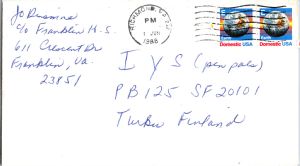 Jo Dianne
c/o Franklin H-S.
611 Crescent Dr
Franklin, Va.
23851
RICHMOND, VA
PM
1 JUN
1988
Domestic USA
Domestic USA
I Y S (pen pals)
P B 125 SF 20101
Turku Finland